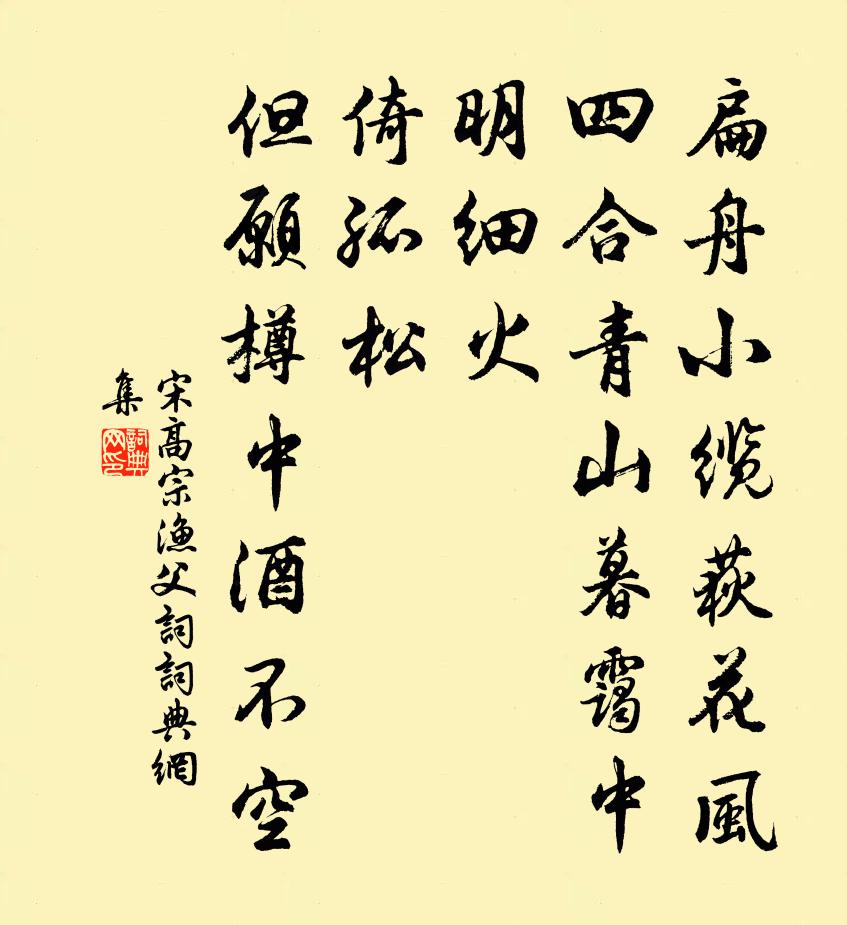 扁舟小缆荻花風
四合青山暮靄中
明细火
倚孤松
但願樽中酒不空
宋高宗漁父詞詞典網
集
詞典
网印